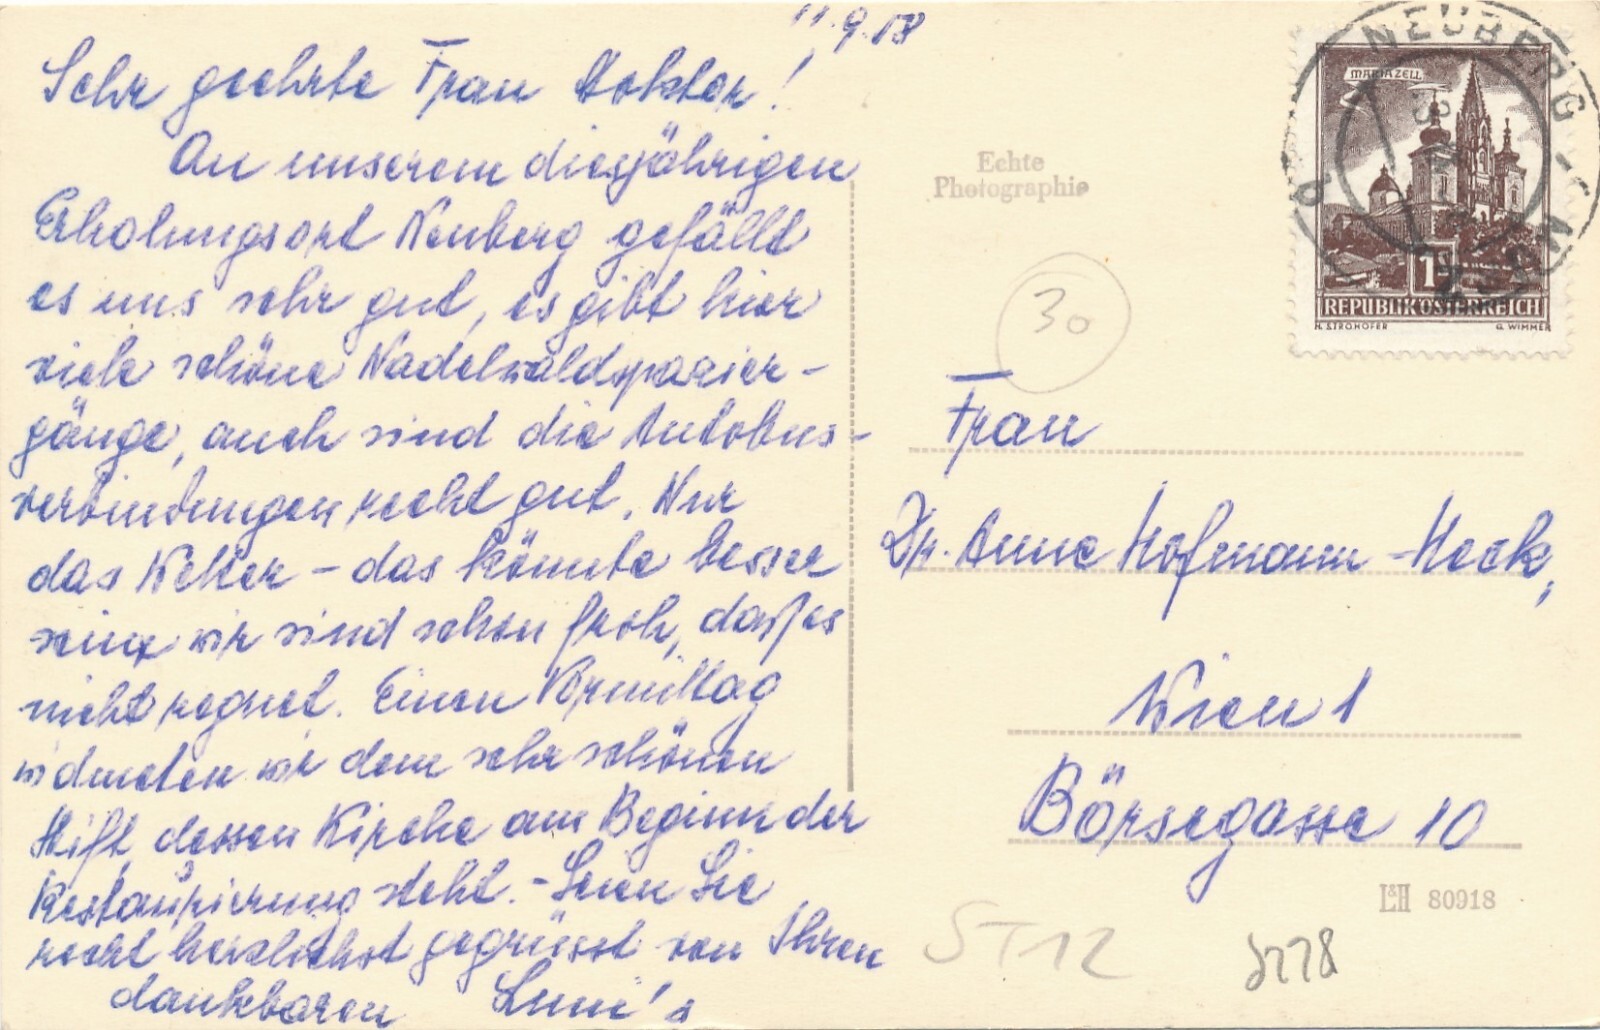 11.9.58
Sehr geehrte Frau Doktor!
An unserem diesjährigen
Erholungsort Neuberg gefällt
es uns sehr gut, es gibt hier
viele schöne Nadelwaldspazier-
gänge, auch sind die Autobus-
verbindungen recht gut. Nur
das Wetter – das könnte besser
sein, wir sind schon froh, daß es
nicht regnet. Einen Vormittag
widmeten wir dem sehr schönen
Stift, dessen Kirche am Beginn der
Restaurierung steht. – Seien Sie
recht herzlichst gegrüsst von Ihren
dankbaren
NEUBERG
MARIAZELL
1
REPUBLIK ÖSTERREICH
H. STROHOFER G. WIMMER
Echte
Photographie
30
Frau
Dr. Anne Hofmann-Heck,
Wien 1
Börsegasse 10
L&H 80918
ST12